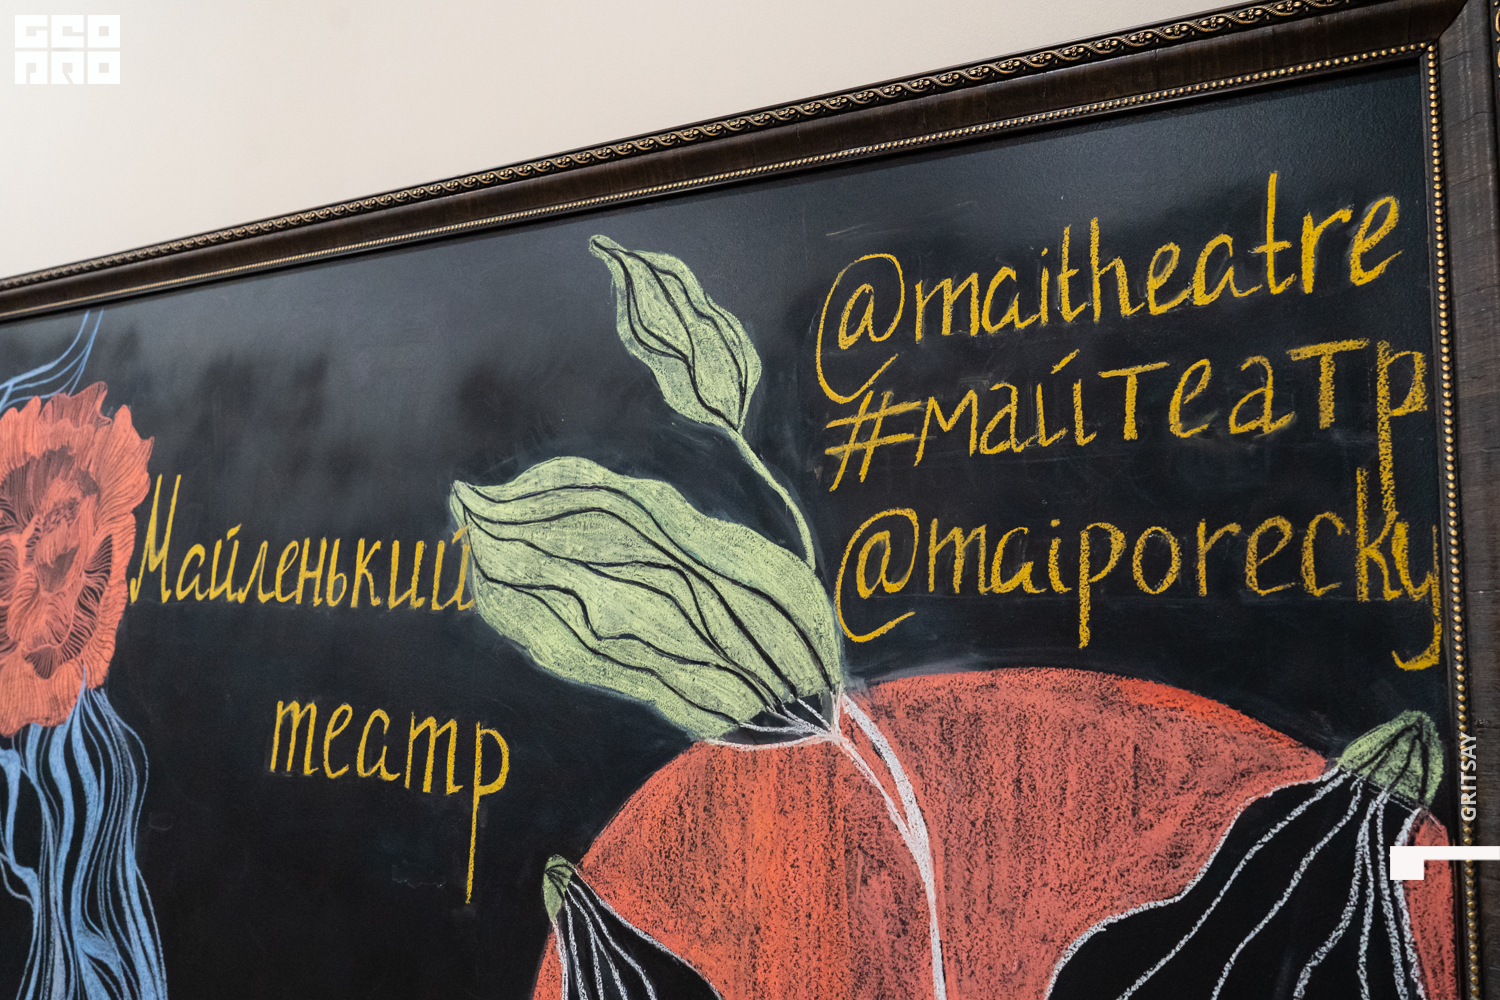 GEO
PRO
@maitheatre
#майтеатр
@maiporecky
Майленький
театр
GRITSAY